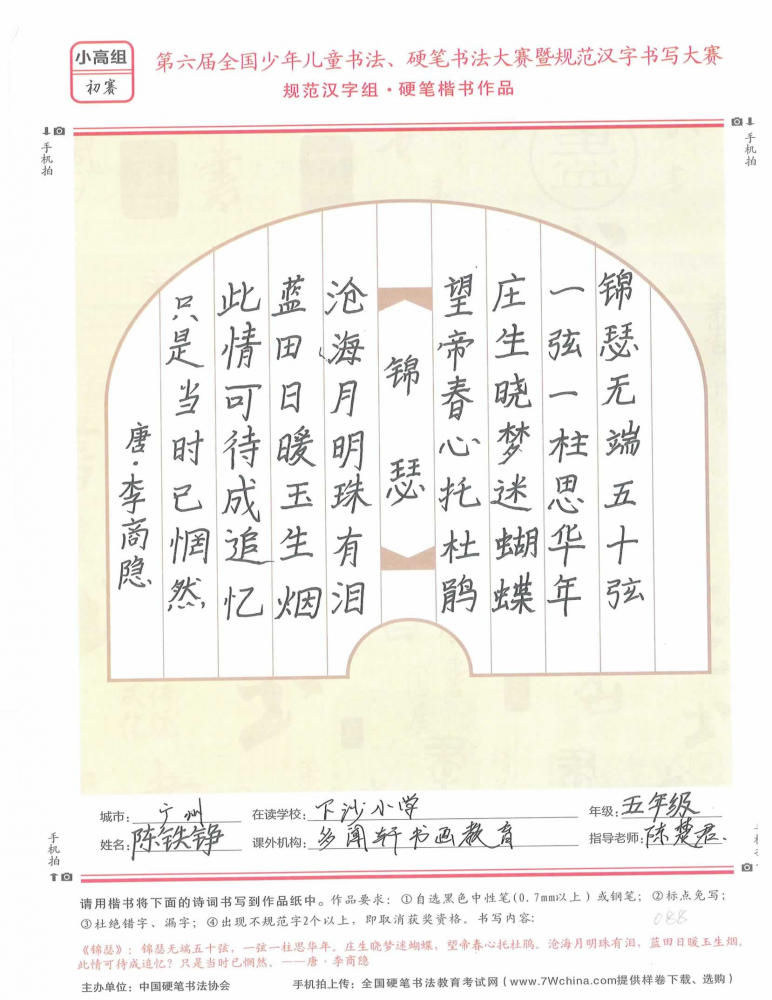 小高组
初赛
第六届全国少年儿童书法、硬笔书法大赛暨规范汉字书写大赛
规范汉字组·硬笔楷书作品
手机拍
手机拍
锦瑟无端五十弦
一弦一柱思华年
庄生晓梦迷蝴蝶
望帝春心托杜鹃
锦瑟
沧海月明珠有泪
蓝田日暖玉生烟
此情可待成追忆
只是当时已惘然
唐·李商隐
城市：广州 在读学校：下沙小学 年级：五年级
姓名：陈铁铮 课外机构：多闻轩书画教育 指导老师：陈楚君
手机拍
请用楷书将下面的诗词书写到作品纸中。作品要求：①自选黑色中性笔(0.7mm以上)或钢笔；②标点免写；
③杜绝错字、漏字；④出现不规范字2个以上，即取消获奖资格。书写内容：
088
《锦瑟》：锦瑟无端五十弦，一弦一柱思华年。庄生晓梦迷蝴蝶，望帝春心托杜鹃。沧海月明珠有泪，蓝田日暖玉生烟。
此情可待成追忆？只是当时已惘然。——唐·李商隐
主办单位：中国硬笔书法协会 手机拍上传：全国硬笔书法教育考试网（www.7Wchina.com提供样卷下载、选购）